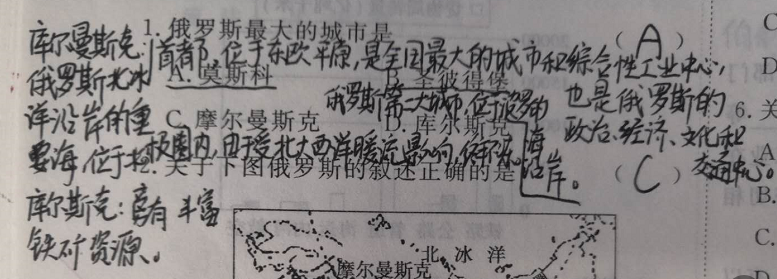 1. 俄罗斯最大的城市是 ( A )
首都,位于东欧平原,是全国最大的城市和综合性工业中心,
也是俄罗斯的
政治、经济、文化和
交通中心。
A. 莫斯科 B. 圣彼得堡
俄罗斯第二大城市,位于波罗的
海
沿岸。
C. 摩尔曼斯克 D. 库尔斯克
库尔曼斯克:
俄罗斯北冰
洋沿岸的重
要海,位于北极圈内,由于受北大西洋暖流影响,终年不
库尔斯克:富有丰富
铁矿资源。
2. 关于下图俄罗斯的叙述正确的是 ( C )
北冰洋
摩尔曼斯克
C
D
6. 关
A
B.
C.
D